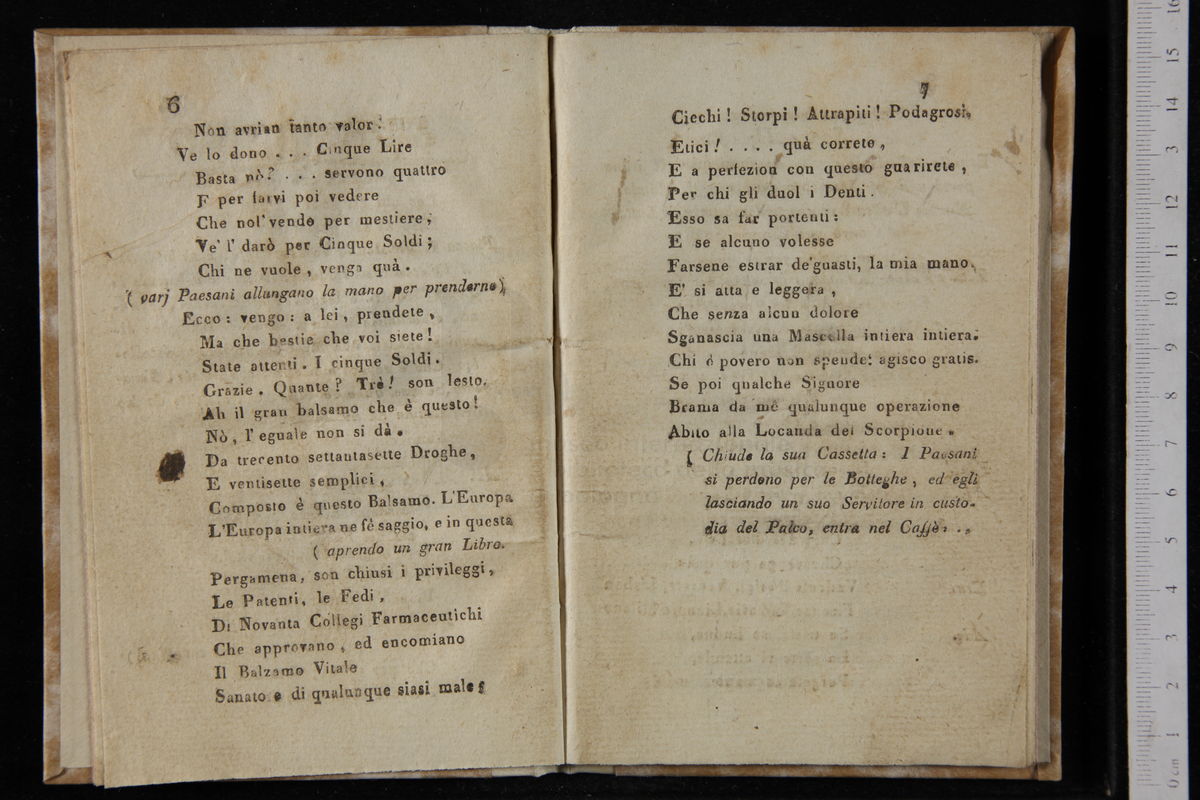 6
Non avrian tanto valor!
Ve lo dono . . . Cinque Lire
Basta nò? . . . servono quattro
E per farvi poi vedere
Che nol' vendo per mestiere,
Ve' l' darò per Cinque Soldi;
Chi ne vuole, venga quà.
( varj Paesani allungano la mano per prenderne)
Ecco: vengo: a lei, prendete,
Ma che bestie che voi siete!
State attenti. I cinque Soldi.
Grazie. Quante? Trè! son lesto.
Ah il gran balsamo che è questo!
Nò, l' eguale non si dà.
Da trecento settantasette Droghe,
E ventisette semplici,
Composto è questo Balsamo. L'Europa
L'Europa intiera ne fè saggio, e in questa
( aprendo un gran Libro.
Pergamena, son chiusi i privileggi,
Le Patenti, le Fedi,
Di Novanta Collegi Farmaceutichi
Che approvano, ed encomiano
Il Balzamo Vitale
Sanatore di qualunque siasi male;
7
Ciechi! Storpi! Attrapiti! Podagrosi,
Etici! . . . . quà correte,
E a perfezion con questo guarirete,
Per chi gli duol i Denti.
Esso sa far portenti:
E se alcuno volesse
Farsene estrar de'guasti, la mia mano
E' si atta e leggera,
Che senza alcun dolore
Sganascia una Mascella intiera intiera.
Chi è povero non spende: agisco gratis.
Se poi qualche Signore
Brama da mè qualunque operazione
Abito alla Locanda del Scorpione.
( Chiude la sua Cassetta: I Paesani
si perdono per le Botteghe, ed egli
lasciando un suo Servitore in custo-
dia del Palco, entra nel Caffè: .,
16
15
14
13
12
11
10
9
8
7
6
5
4
3
2
1
0 cm